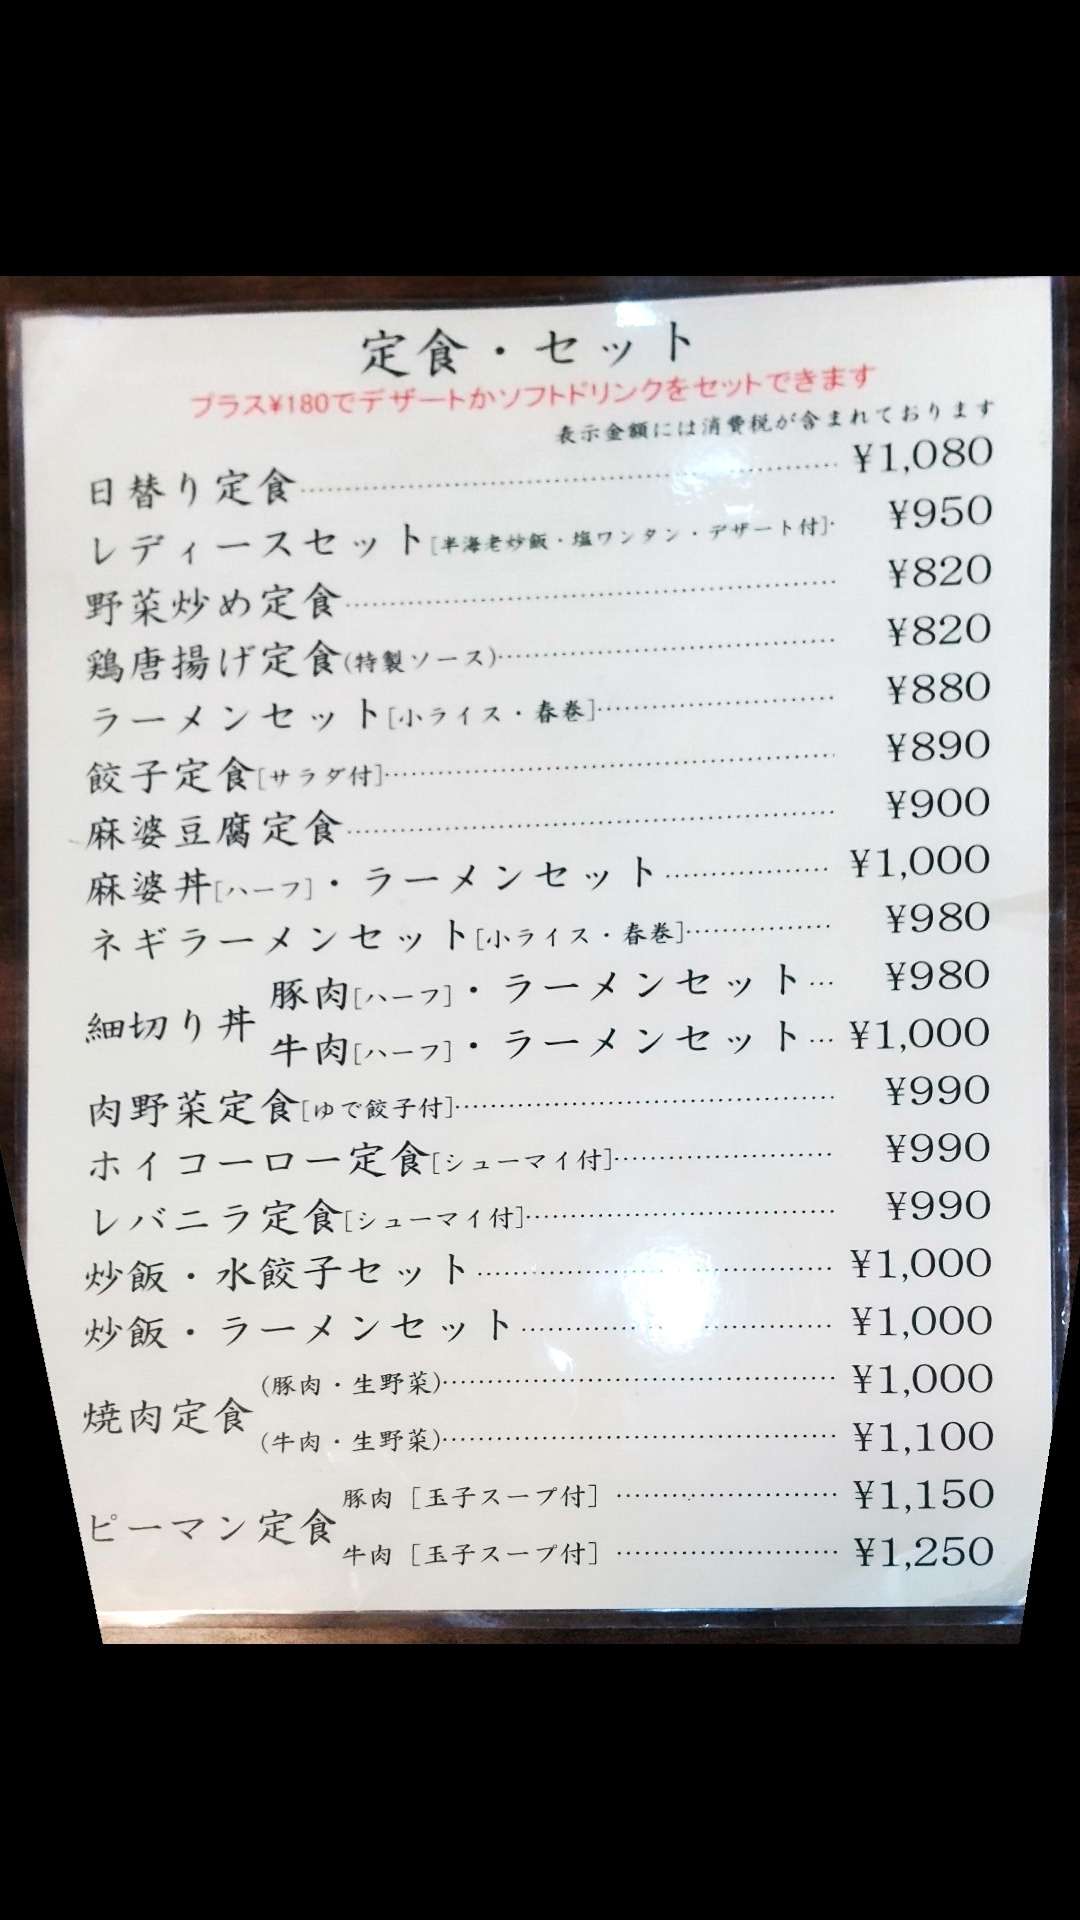 定食・セット
プラス¥180でデザートかソフトドリンクをセットできます
表示金額には消費税が含まれております
日替り定食 ¥1,080
レディースセット[半海老炒飯・塩ワンタン・デザート付] ¥950
野菜炒め定食 ¥820
鶏唐揚げ定食(特製ソース) ¥820
ラーメンセット[小ライス・春巻] ¥880
餃子定食[サラダ付] ¥890
麻婆豆腐定食 ¥900
麻婆丼[ハーフ]・ラーメンセット ¥1,000
ネギラーメンセット[小ライス・春巻] ¥980
細切り丼
豚肉[ハーフ]・ラーメンセット ¥980
牛肉[ハーフ]・ラーメンセット ¥1,000
肉野菜定食[ゆで餃子付] ¥990
ホイコーロー定食[シューマイ付] ¥990
レバニラ定食[シューマイ付] ¥990
炒飯・水餃子セット ¥1,000
炒飯・ラーメンセット ¥1,000
焼肉定食
(豚肉・生野菜) ¥1,000
(牛肉・生野菜) ¥1,100
ピーマン定食
豚肉[玉子スープ付] ¥1,150
牛肉[玉子スープ付] ¥1,250